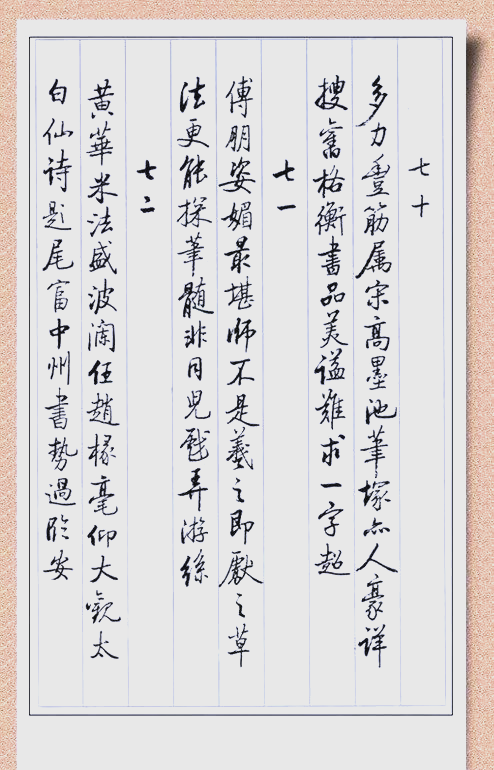 七十
多力豐筋属宋高墨池筆塚亦人豪詳
搜舊格衡書品美谥難求一字超
七一
傅朋姿媚最堪師不是羲之即獻之草
法更能探筆髓非同児戲弄游絲
七二
黃華米法盛波瀾任趙椽毫仰大觀太
白仙詩題尾富中州書勢過臨安